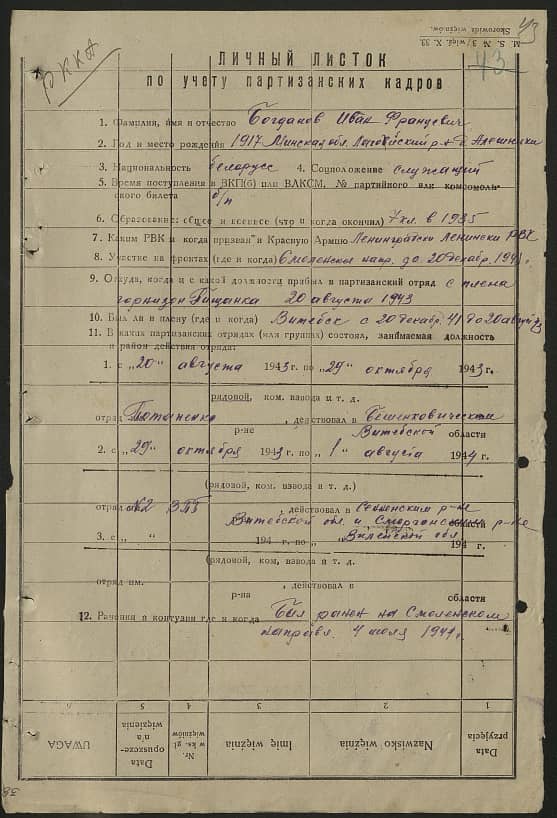 43
M. S. № 3/więź. X. 33.
Skorowidz więźniów.
43
РККА
ЛИЧНЫЙ ЛИСТОК
по учету партизанских кадров
1. Фамилия, имя и отчество Богданов Иван Францевич
2. Год и место рождения 1917 Минская обл. Логойский р-н д. Алешники
3. Национальность белорусс 4. Соцположение служащий
5. Время поступления в ВКП(б) или ВЛКСМ, № партийного или комсомоль-
ского билета б/п
6. Образование: общее и военное (что и когда окончил) 7 кл. в 1935
7. Каким РВК и когда призван в Красную Армию Ленинградски Ленински РВК
8. Участие на фронтах (где и когда) Смоленское напр. до 20 декабр. 1941 г.
9. Откуда, когда и с какой должности прибыл в партизанский отряд с плена
горнизон 20 августа 1943
10. Был ли в плену (где и когда) Витебск с 20 декабр. 41 до 20 август 43
11. В каких партизанских отрядах (или группах) состоял, занимаемая должность
и район действия отряда:
1. с „20" августа 1943 г. по „29" октября 1943 г.
рядовой, ком. взвода и т. д.
отряд Потапенко, действовал в Бешенковическом
р-не Витебской области
2. с „29" октября 1943 г. по „1" августа 1944 г.
(рядовой, ком. взвода и т. д.)
отряд №2 , действовал в Сенненским р-не
Витебской обл. и Сморгонском р-не области
3. с „ " 194 г. по „ " Виленской обл. 194 г.
(рядовой, ком. взвода и т. д.
отряд им. , действовал в
р-на области
12. Ранения и контузии где и когда Был ранен на Смоленском
направл. 4 июля 1941 г.
1 2 3 4 5 6
Data przyjęcia
Nazwisko więźnia
Imię więźnia
Nr. w ks. gł. więźniów
Data opuszczenia więzienia
UWAGA
38